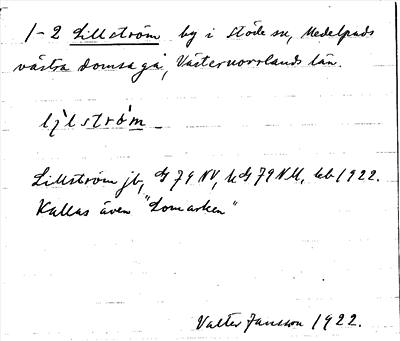 1-2 Lillström by i Stöde sn, Medelpads
västra domsaga, Västernorrlands län.
lįlström
Lillström jb, GJ 79 NV, kb 1922.
Kallas även "Lomarken"
Valter Jansson 1922.